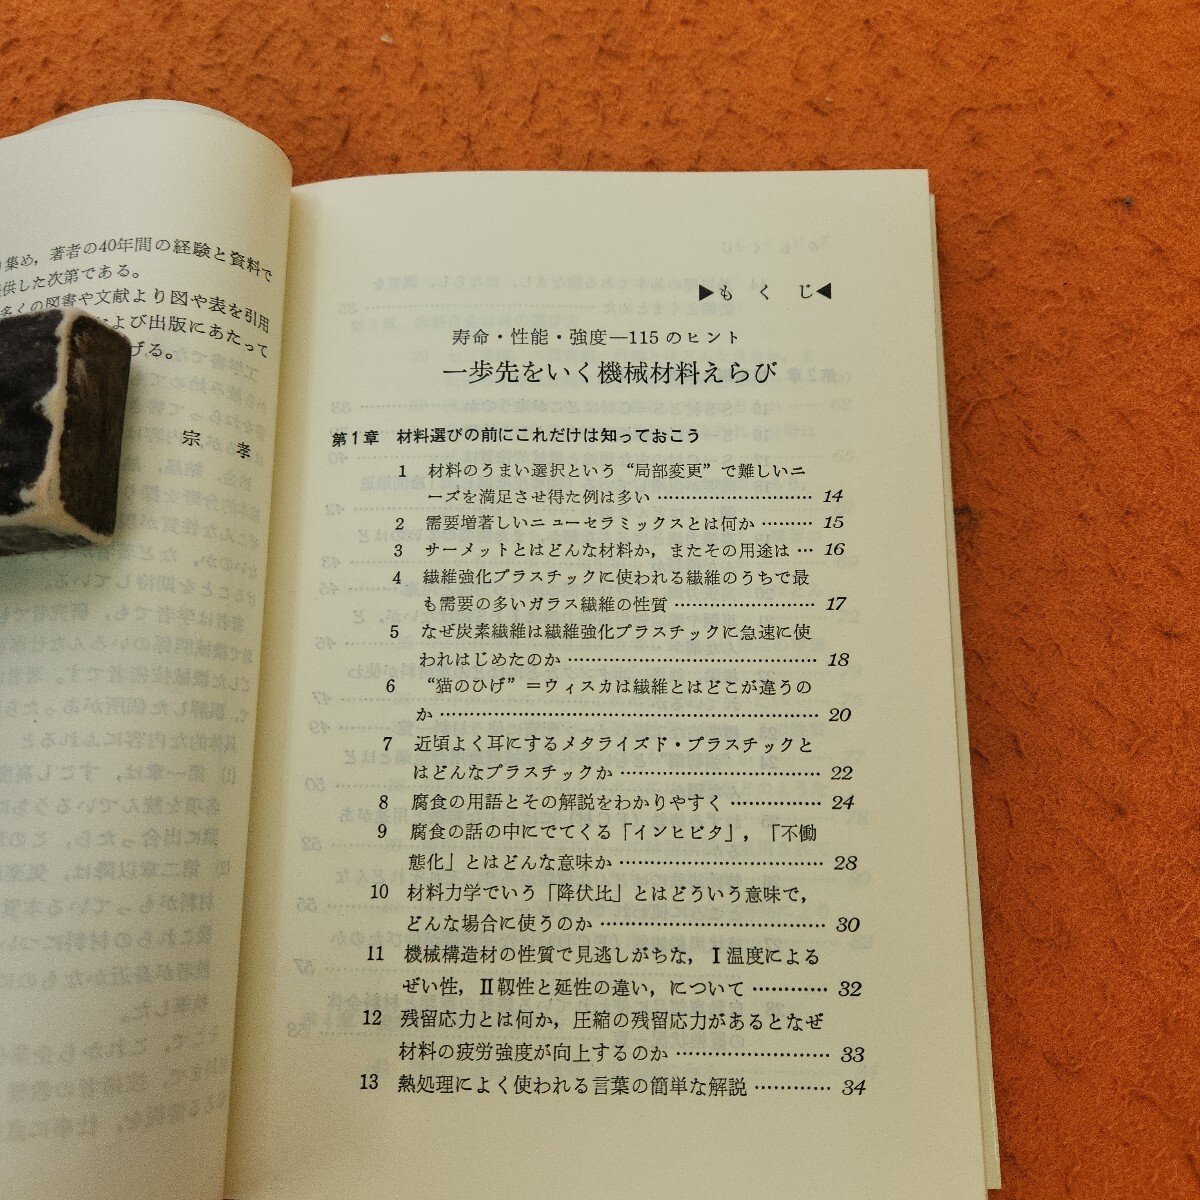 集め，著者の40年間の経験と資料で
供した次第である。
多くの図書や文献より図や表を引用
および出版にあたって
げる。
宗 孝
▶も く じ◀
寿命・性能・強度―115のヒント
一歩先をいく機械材料えらび
第1章 材料選びの前にこれだけは知っておこう
1 材料のうまい選択という“局部変更”で難しいニ
ーズを満足させ得た例は多い …………………… 14
2 需要増著しいニューセラミックスとは何か ……… 15
3 サーメットとはどんな材料か，またその用途は … 16
4 繊維強化プラスチックに使われる繊維のうちで最
も需要の多いガラス繊維の性質 …………………… 17
5 なぜ炭素繊維は繊維強化プラスチックに急速に使
われはじめたのか ………………………………… 18
6 “猫のひげ”＝ウィスカは繊維とはどこが違うの
か …………………………………………………… 20
7 近頃よく耳にするメタライズド・プラスチックと
はどんなプラスチックか …………………………… 22
8 腐食の用語とその解説をわかりやすく …………… 24
9 腐食の話の中にでてくる「インヒビタ」，「不働
態化」とはどんな意味か …………………………… 28
10 材料力学でいう「降伏比」とはどういう意味で，
どんな場合に使うのか ……………………………… 30
11 機械構造材の性質で見逃しがちな，Ⅰ温度による
ぜい性，Ⅱ靱性と延性の違い，について ………… 32
12 残留応力とは何か，圧縮の残留応力があるとなぜ
材料の疲労強度が向上するのか …………………… 33
13 熱処理によく使われる言葉の簡単な解説 ………… 34